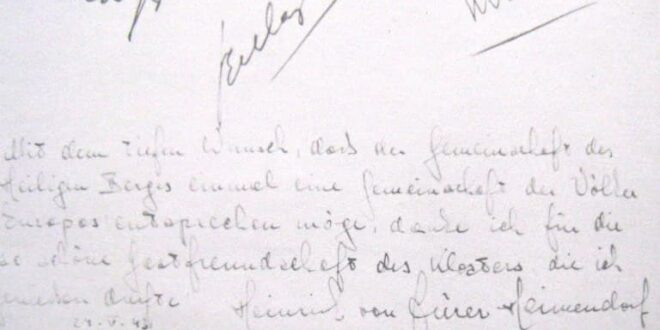 Mit dem tiefen Wunsch, dass der Gemeinschaft des
Heiligen Berges einmal eine Gemeinschaft der Völker
Europas entsprechen möge, danke ich für die
so schöne Gastfreundschaft des Klosters, die ich
durfte
Heinrich von Fürer-Haimendorf